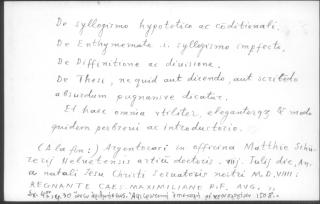 De syllogismo hypotetico ac cōditionali.
De Enthymemate .i. syllogismo impfecto.
De Diffinitione ac diuisione.
De Thesi, ne quid aut dicendo, aut scribēdo
absurdum pugnansve dicatur.
Et haec omnia utiliter, eleganterq3 & modo
quidem perbrevi ac introductorio.
(A la fin:) Argentoraci in officina Matthie Schü-
rerij Heluetensis artiū doctoris. viij. Julij die, An-
a natali Jesu Christi seruatoris nostri M.D.VIIII:
REGNANTE CAES. MAXIMILIANO P.F. AUG.
1508.